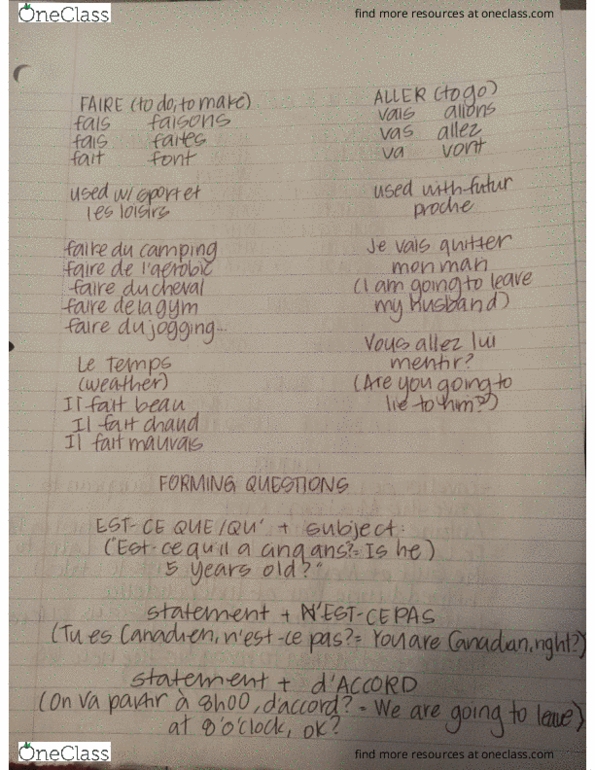 OneClass
find more resources at oneclass.com
FAIRE (to do, to make)
fais faisons
fais faites
fait font
used w/ sport et
les loisirs
faire du camping
faire de l'aérobic
faire du cheval
faire de la gym
faire du jogging...
Le Temps
(weather)
Il fait beau
Il fait chaud
Il fait mauvais
ALLER (to go)
vais allons
vas allez
va vont
used with futur
proche
Je vais quitter
mon man
(I am going to leave
my husband)
Vous allez lui
mentir?
(Are you going to
lie to him?)
FORMING QUESTIONS
EST-CE QUE/QU' + subject:
("Est-ce qu'il a cinq ans? = Is he)
5 years old?"
statement + N'EST-CE PAS
(Tu es Canadien, n'est-ce pas? = You are Canadian, right?)
statement + d'ACCORD
(On va partir à 8h00, d'accord? = We are going to leave)
at 8 o'clock, ok?
OneClass
find more resources at oneclass.com